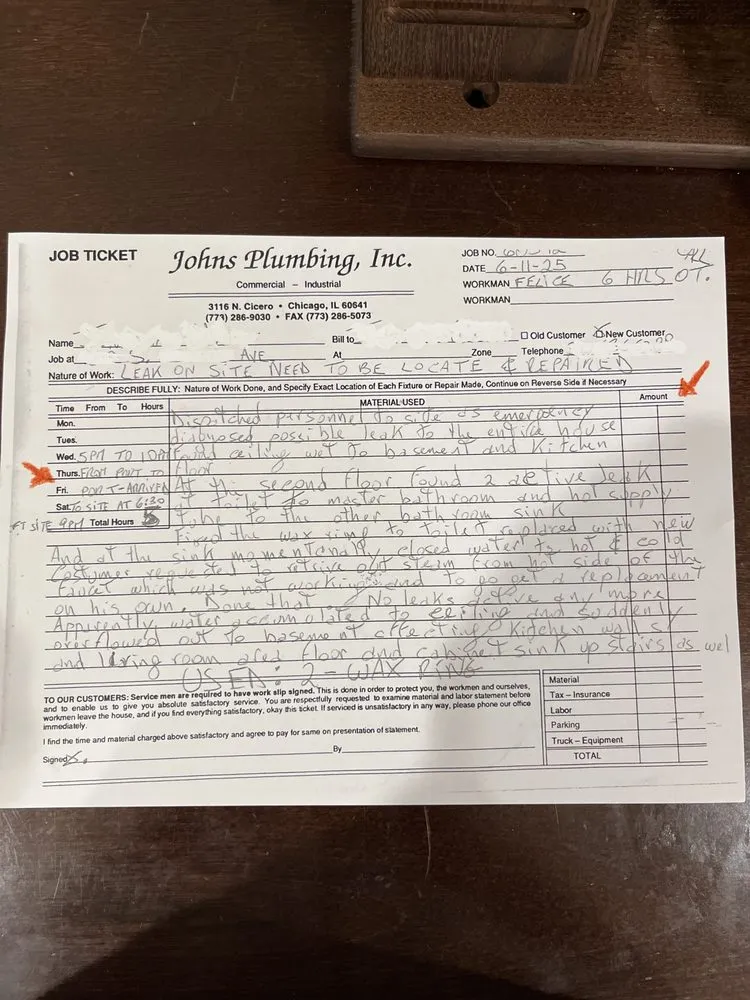 JOB TICKET
Johns Plumbing, Inc.
Commercial – Industrial
3116 N. Cicero • Chicago, IL 60641
(773) 286-9030 • FAX (773) 286-5073
JOB NO.
DATE 6-11-25
WORKMAN FELICE 6 HRS OT.
WORKMAN
Name
Bill to
Old Customer New Customer
Job at S. AVE At Zone Telephone
Nature of Work: LEAK ON SITE NEED TO BE LOCATE & REPAIRED
DESCRIBE FULLY: Nature of Work Done, and Specify Exact Location of Each Fixture or Repair Made, Continue on Reverse Side if Necessary
Time From To Hours MATERIAL USED Amount
Mon. Dispitched personnel to site as emergency
Tues. diagnosed possible leak to the entire house
Wed. 5PM TO found ceiling wet to basement and Kitchen
Thurs. FROM PORT TO floor
Fri. PORT-ARRIVED At the second floor found 2 active leak
Sat. TO SITE AT 6:30 1 toilet to master bathroom and hot supply
SITE 9PM Total Hours 5 tube to the other bathroom sink
Fixed the wax ring to toilet replaced with new
And at the sink momentanally closed water to hot & cold
Costumer requested to retrive out steam from hot side of the
faucet which was not working and to go get a replacement
on his own. Done that. No leaks active any more
Apparently water accumolated to ceiling and suddenly
overflowed out to basement affecting Kitchen walls
and living room area floor and cabinet sink up stairs as wel
USED: 2 - WAX RING
TO OUR CUSTOMERS: Service men are required to have work slip signed. This is done in order to protect you, the workmen and ourselves,
and to enable us to give you absolute satisfactory service. You are respectfully requested to examine material and labor statement before
workmen leave the house, and if you find everything satisfactory, okay this ticket. If serviced is unsatisfactory in any way, please phone our office
immediately.
I find the time and material charged above satisfactory and agree to pay for same on presentation of statement.
Signed X. By
Material
Tax – Insurance
Labor
Parking
Truck – Equipment
TOTAL